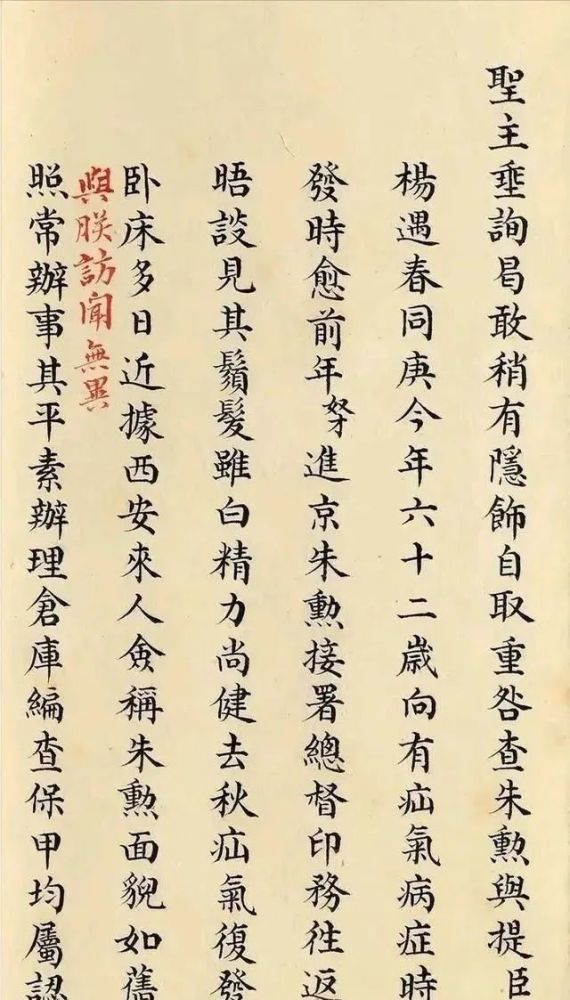 聖主垂詢曷敢稍有隱飾自取重咎查朱勳與提臣
楊遇春同庚今年六十二歲向有疝氣病症時
發時愈前年奴才進京朱勳接署總督印務往返
晤談見其鬚髮雖白精力尚健去秋疝氣復發
卧床多日近據西安來人僉稱朱勳面貌如舊
與朕訪聞無異
照常辦事其平素辦理倉庫編查保甲均屬認